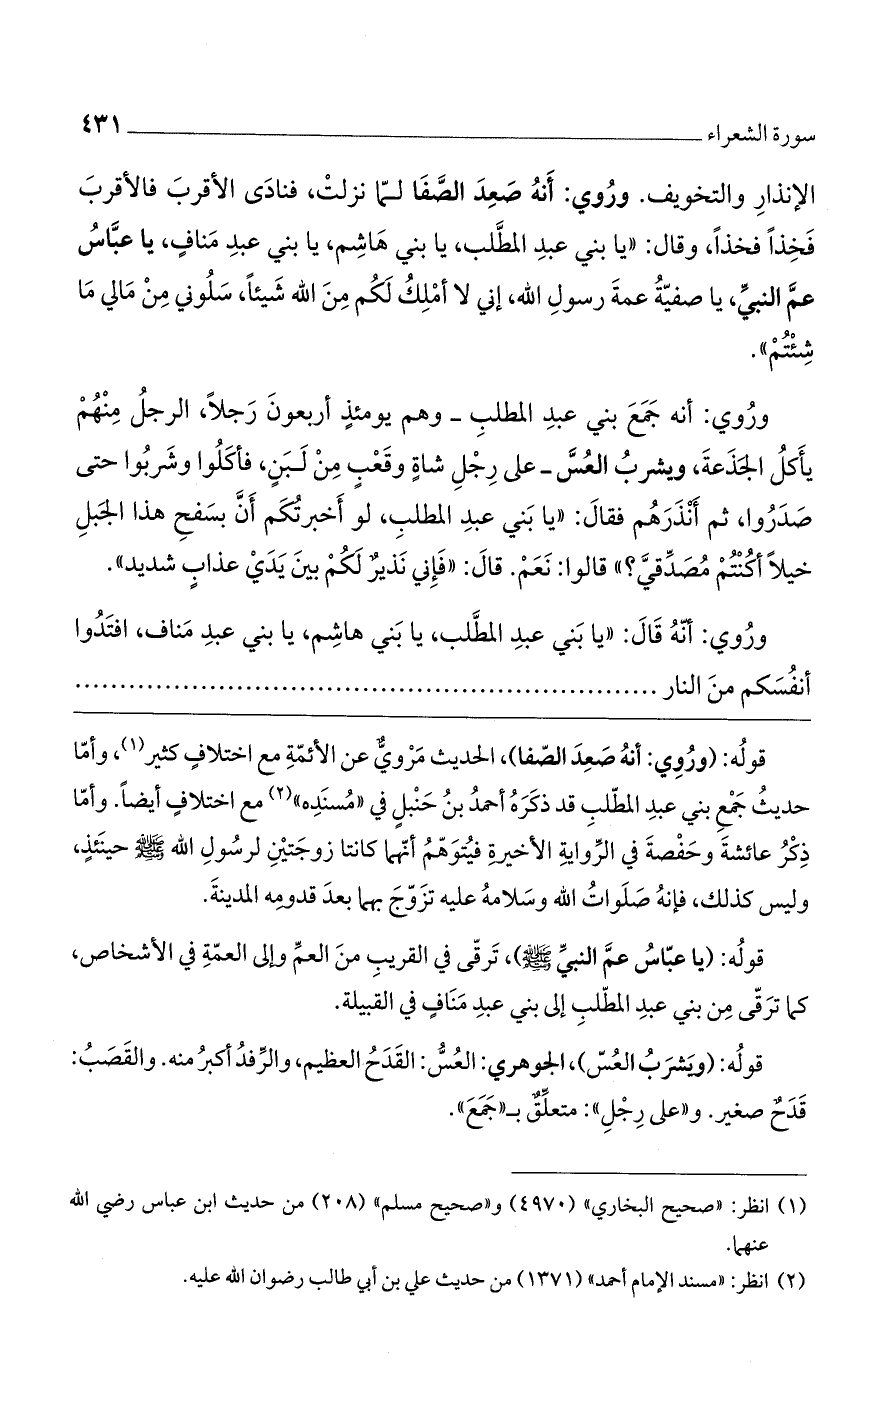 سورة الشعراء ٤٣١
الإنذارِ والتخويف. ورُوي: أَنهُ صَعِدَ الصَّفَا لـمّا نزلتْ، فنادَى الأقربَ فالأقربَ
فَخِذاً فخذاً، وقال: «يا بني عبدِ المطَّلب، يا بني هَاشِم، يا بني عبدِ مَنافٍ، يا عبَّاسُ
عمَّ النبيِّ، يا صفيّةُ عمةَ رسولِ الله، إني لا أمْلِكُ لَكُم مِنَ الله شَيئاً، سَلُوني مِنْ مَالي مَا
شِئْتُمْ».
ورُوي: أنه جَمَعَ بني عبدِ المطلبِ ـ وهم يومئذٍ أربعونَ رَجلاً، الرجلُ مِنْهُمْ
يأكلُ الجَذَعةَ، ويشربُ العُسَّ ـ على رِجْلِ شاةٍ وقَعْبٍ مِنْ لَـبَنٍ، فأكَلُوا وشَربُوا حتى
صَدَرُوا، ثم أَنْذَرَهُم فقالَ: «يا بَني عبدِ المطلبِ، لو أَخبرتُكَم أَنَّ بسَفحِ هذا الجَبلِ
خيلاً أكُنْتُمْ مُصَدِّقيَّ؟» قالوا: نَعَمْ. قالَ: «فَإني نَذيرٌ لَكُمْ بينَ يَدَيْ عذابٍ شديد».
ورُوي: أنّهُ قَالَ: «يا بَني عبدِ المطَّلب، يا بَني هاشِم، يا بني عبدِ مَناف، افتَدُوا
أنفُسَكم منَ النار ................................................................
قولُه: (ورُوِي: أنهُ صَعِدَ الصّفا)، الحديث مَرْويٌّ عن الأئمّةِ مع اختلافٍ كثير(١)، وأمّا
حديثُ جَمْعِ بني عبدِ المطّلبِ قد ذكَرَهُ أحمدُ بنُ حَنْبلٍ في «مُسنَدِه»(٢) مع اختلافٍ أيضاً. وأمّا
ذِكْرُ عائشةَ وحَفْصةَ في الرّوايةِ الأخيرةِ فيُتوَهّمُ أنّهما كانتا زوجَتيْنِ لرسُولِ الله ﷺ حينَئذٍ،
وليس كذلك، فإنهُ صَلَواتُ الله وسَلامهُ عليه تزَوّجَ بهما بعدَ قدومِه المدينةَ.
قولُه: (يا عبّاسُ عمَّ النبيِّ ﷺ)، تَرقّى في القريبِ منَ العمِّ وإلى العمّةِ في الأشخاص،
كما ترَقّى مِن بني عبدِ المطّلبِ إلى بني عبدِ مَنَافٍ في القبيلة.
قولُه: (ويَشرَبُ العُسّ)، الجوهري: العُسُّ: القَدَحُ العظيم، والرِّفدُ أكبرُ منه. والقَصَبُ:
قَدَحٌ صغير. و«على رِجْلِ»: متعلِّقٌ بـ«جَمَعَ».
(١) انظر: «صحيح البخاري» (٤٩٧٠) و«صحيح مسلم» (٢٠٨) من حديث ابن عباس رضي الله
عنهما.
(٢) انظر: «مسند الإمام أحمد» (١٣٧١) من حديث علي بن أبي طالب رضوان الله عليه.